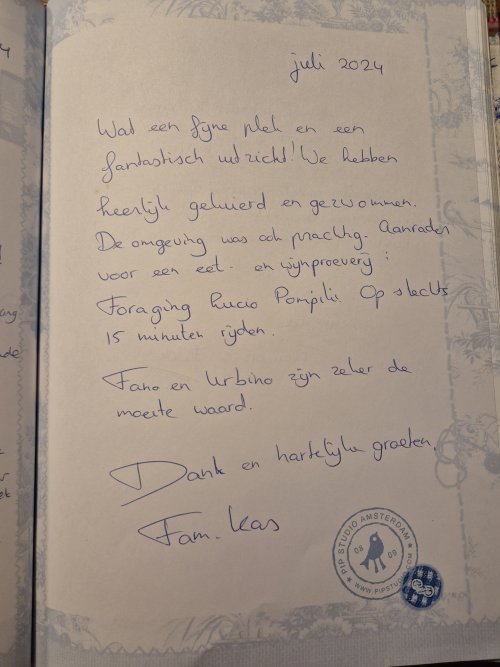 juli 2024
Wat een fijne plek en een
fantastisch uitzicht! We hebben
heerlijk geluierd en gezwommen.
De omgeving was ook prachtig. Aanrader
voor een eet- en wijnproeverij:
Foraging Lucio Pompili. Op slechts
15 minuten rijden.
Fano en Urbino zijn zeker de
moeite waard.
Dank en hartelijke groeten,
Fam. Kas
PIP STUDIO AMSTERDAM
08 09
WWW.PIPSTUDIO